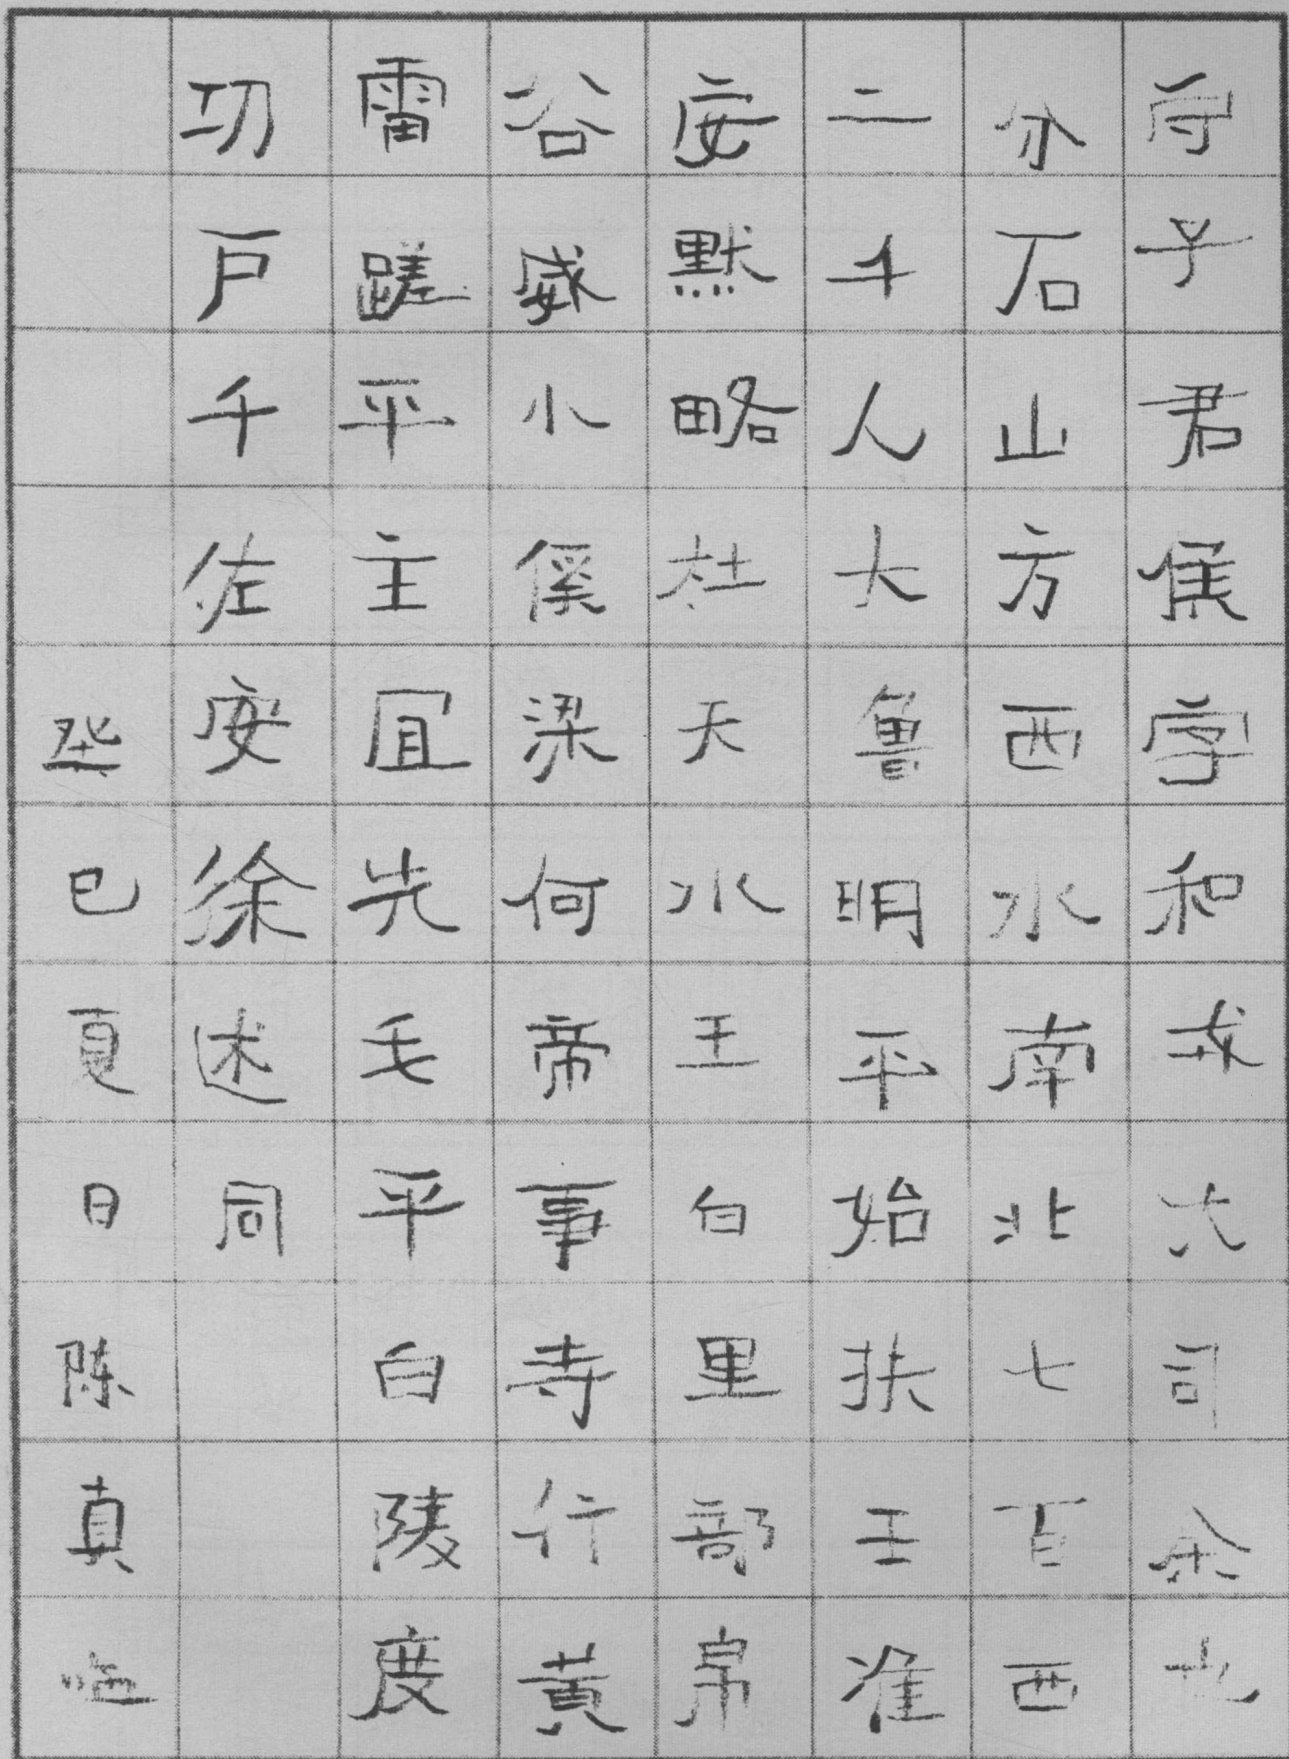 守子君侯字和戎六司余也
分石山方西水南北七百西
二千人大鲁明平始扶王淮
安默略杜天水王白里部帛
谷威小傒梁何帝事寺行黄
雷蹉平主宜先毛平白陵度
功户千佐安徐述同
巳夏日陈真临